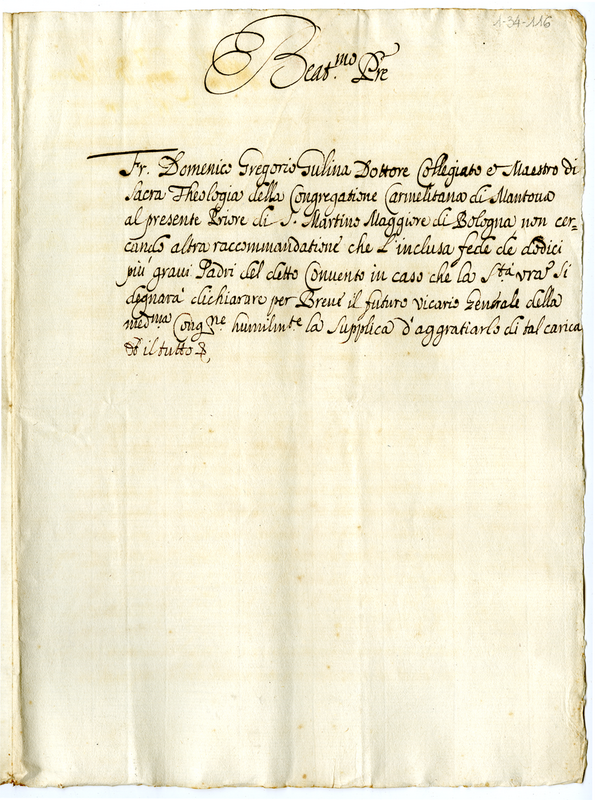 1-34-116
Beat.mo Pre
Fr. Domenico Gregorio Gulina Dottore Collegiato e Maestro di
Sacra Theologia della Congregatione Carmelitana di Mantova
al presente Priore di S. Martino Maggiore di Bologna non cer=
cando altra raccommandatione che l'inclusa fede de dodici
più gravi Padri del detto Convento in caso che la S.tà vra si
degnarà dichiarare per Breve il futuro vicario Generale della
med.ma Cong.ne humilm.te la supplica d'aggratiarlo di tal carica
il tutto